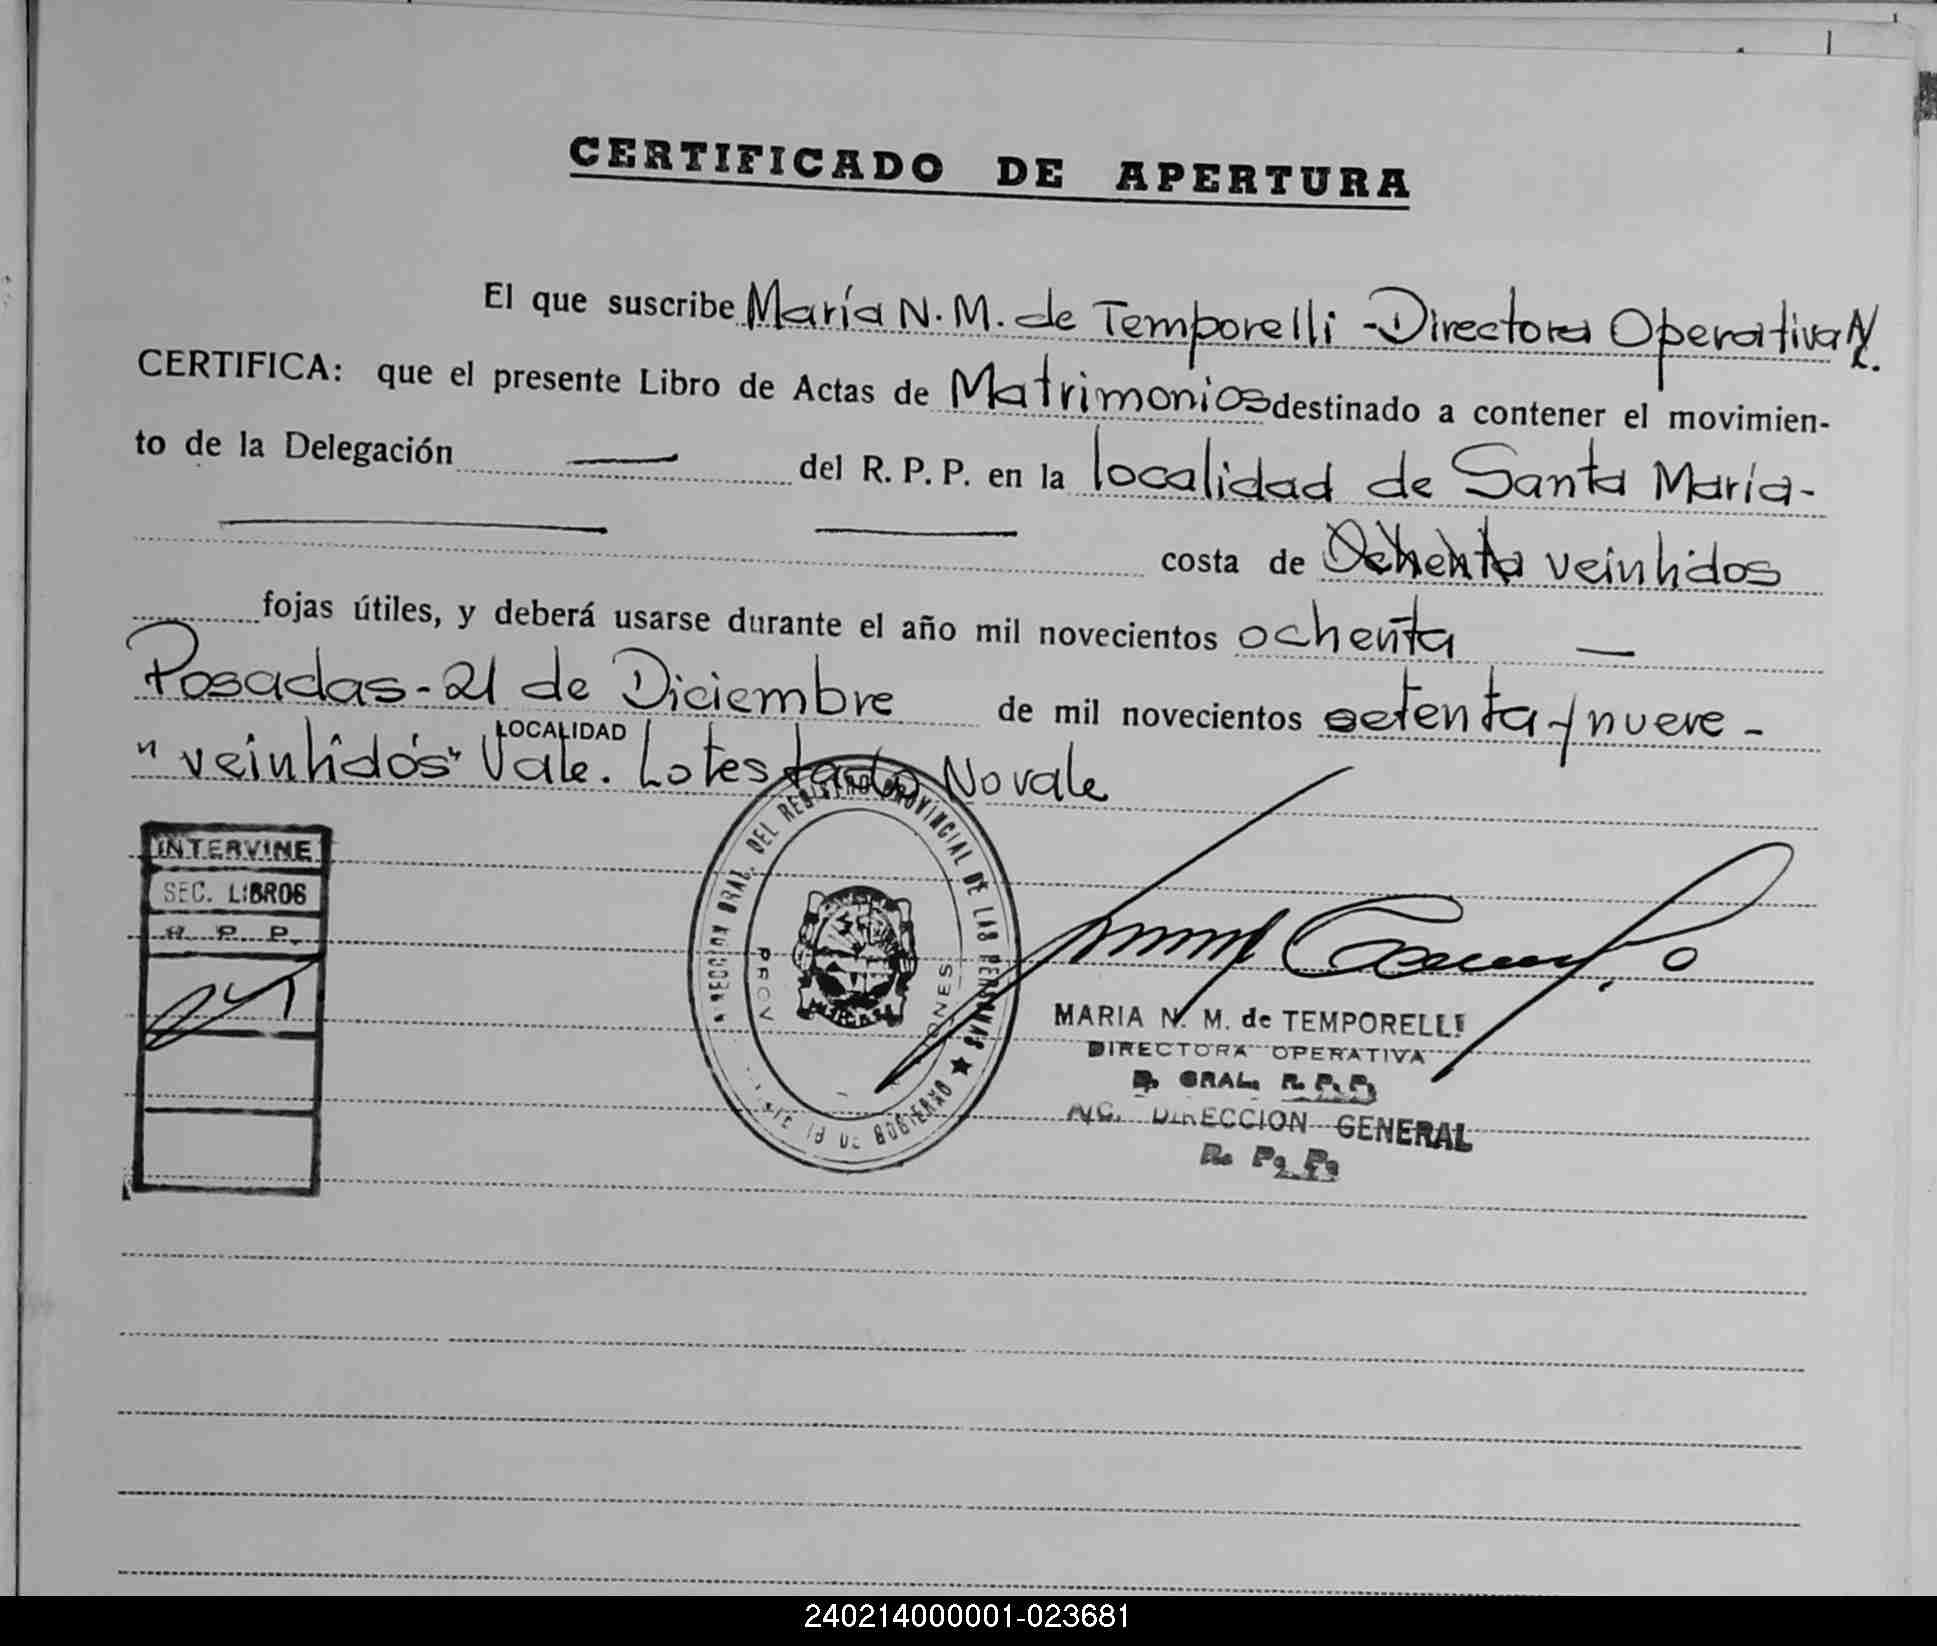 CERTIFICADO DE APERTURA
El que suscribe María N. M. de Temporelli - Directora Operativa
CERTIFICA: que el presente Libro de Actas de Matrimonios destinado a contener el movimien-
to de la Delegación — del R. P. P. en la localidad de Santa María-
costa de Ochenta veintidos
fojas útiles, y deberá usarse durante el año mil novecientos ochenta —
Posadas - 21 de Diciembre de mil novecientos setenta y nueve -
LOCALIDAD
"veintidós" Vale. Lo testado No vale
INTERVINE
SEC. LIBROS
R. P. P.
DIRECCION GRAL. DEL REGISTRO PROVINCIAL DE LAS PERSONAS
DE GOBIERNO
MARIA N. M. de TEMPORELLI
DIRECTORA OPERATIVA
D. GRAL. R. P. P.
A/C. DIRECCION GENERAL
R. P. P.
240214000001-023681